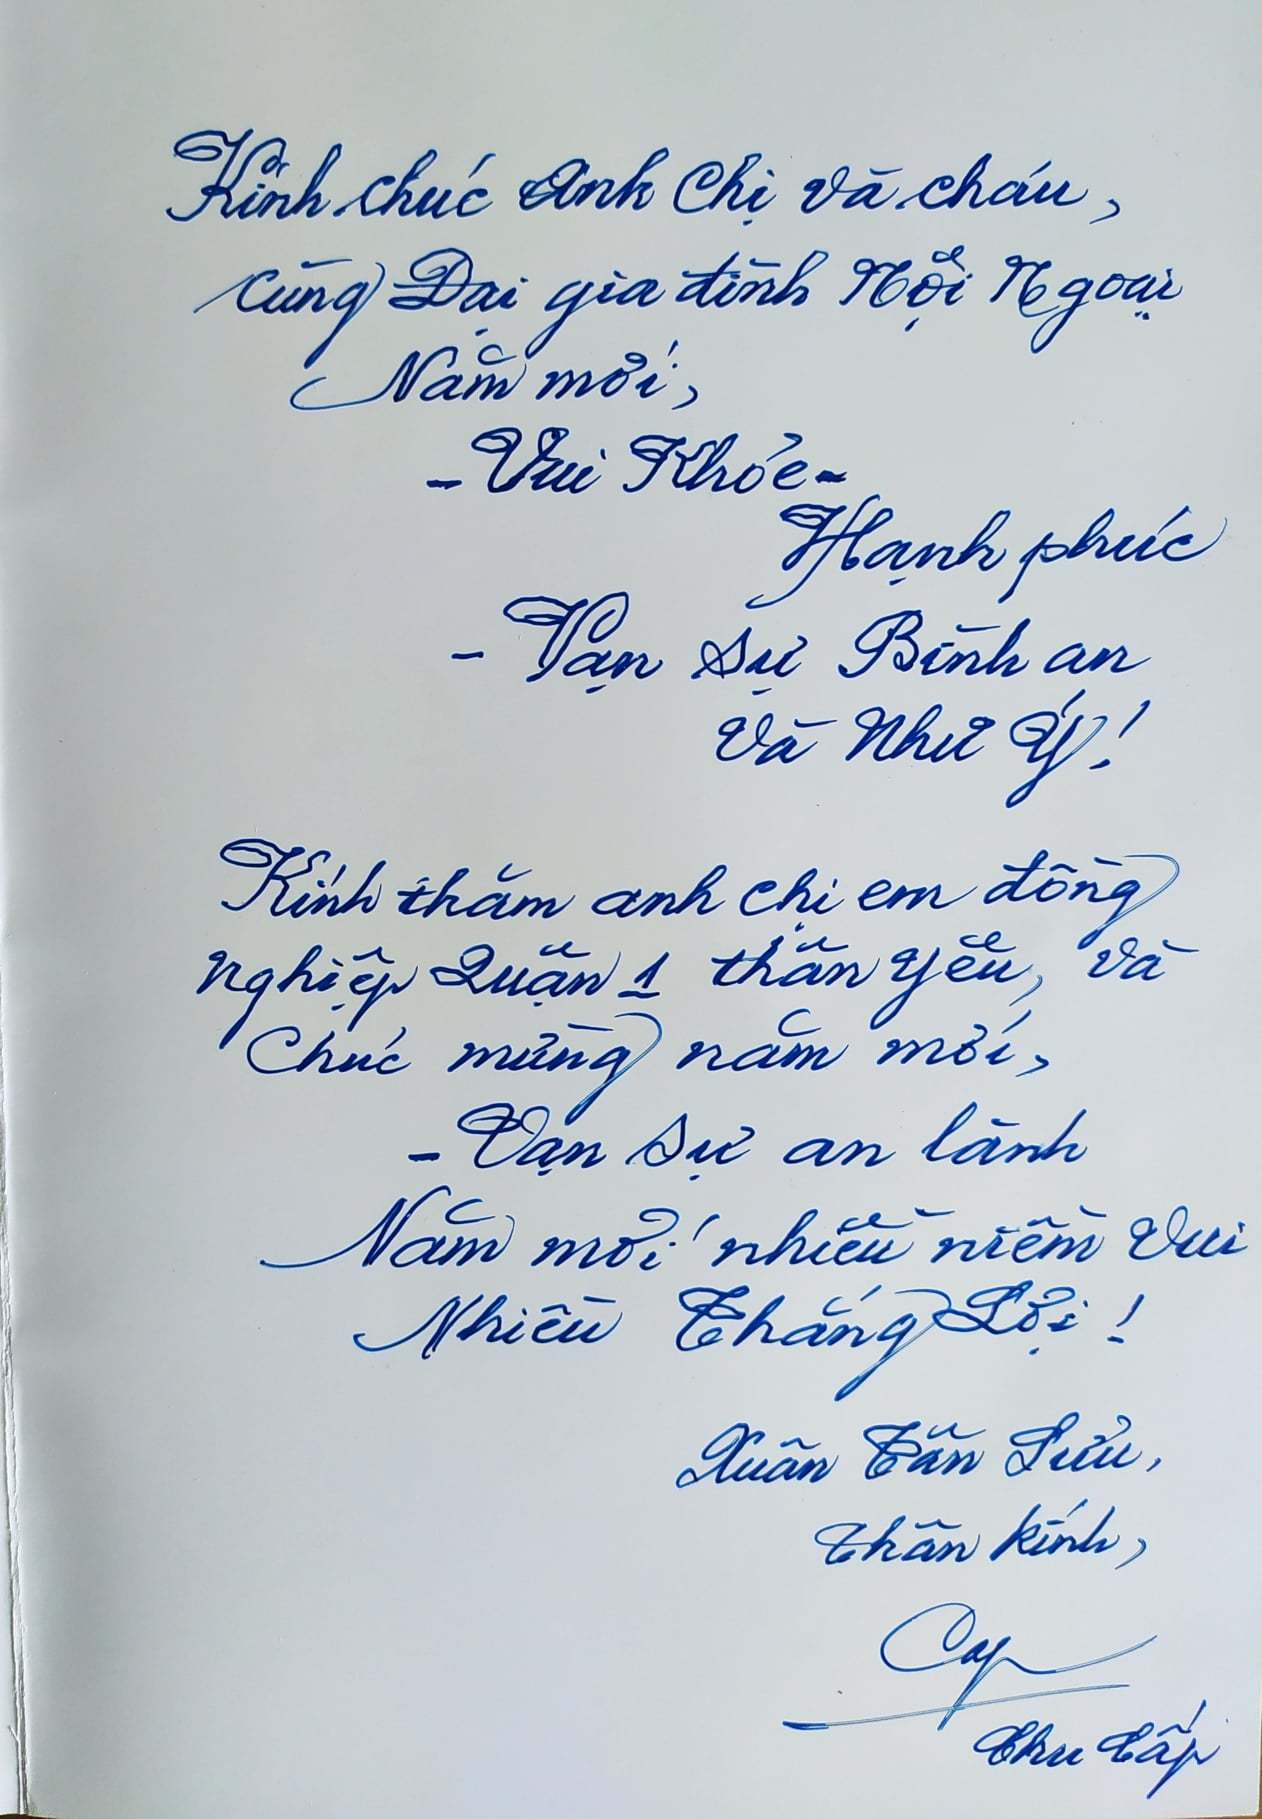 Kính chúc Anh Chị và cháu,
cùng Đại gia đình Nội Ngoại
Năm mới,
- Vui Khỏe -
Hạnh phúc
- Vạn sự Bình an
và Như Ý!
Kính thăm anh chị em đồng
nghiệp Quận 1 thân yêu, và
Chúc mừng năm mới,
- Vạn sự an lành
Năm mới nhiều niềm vui
Nhiều Thắng Lợi!
Xuân Tân Sửu,
Thân kính,
Cap
Thu Cấp